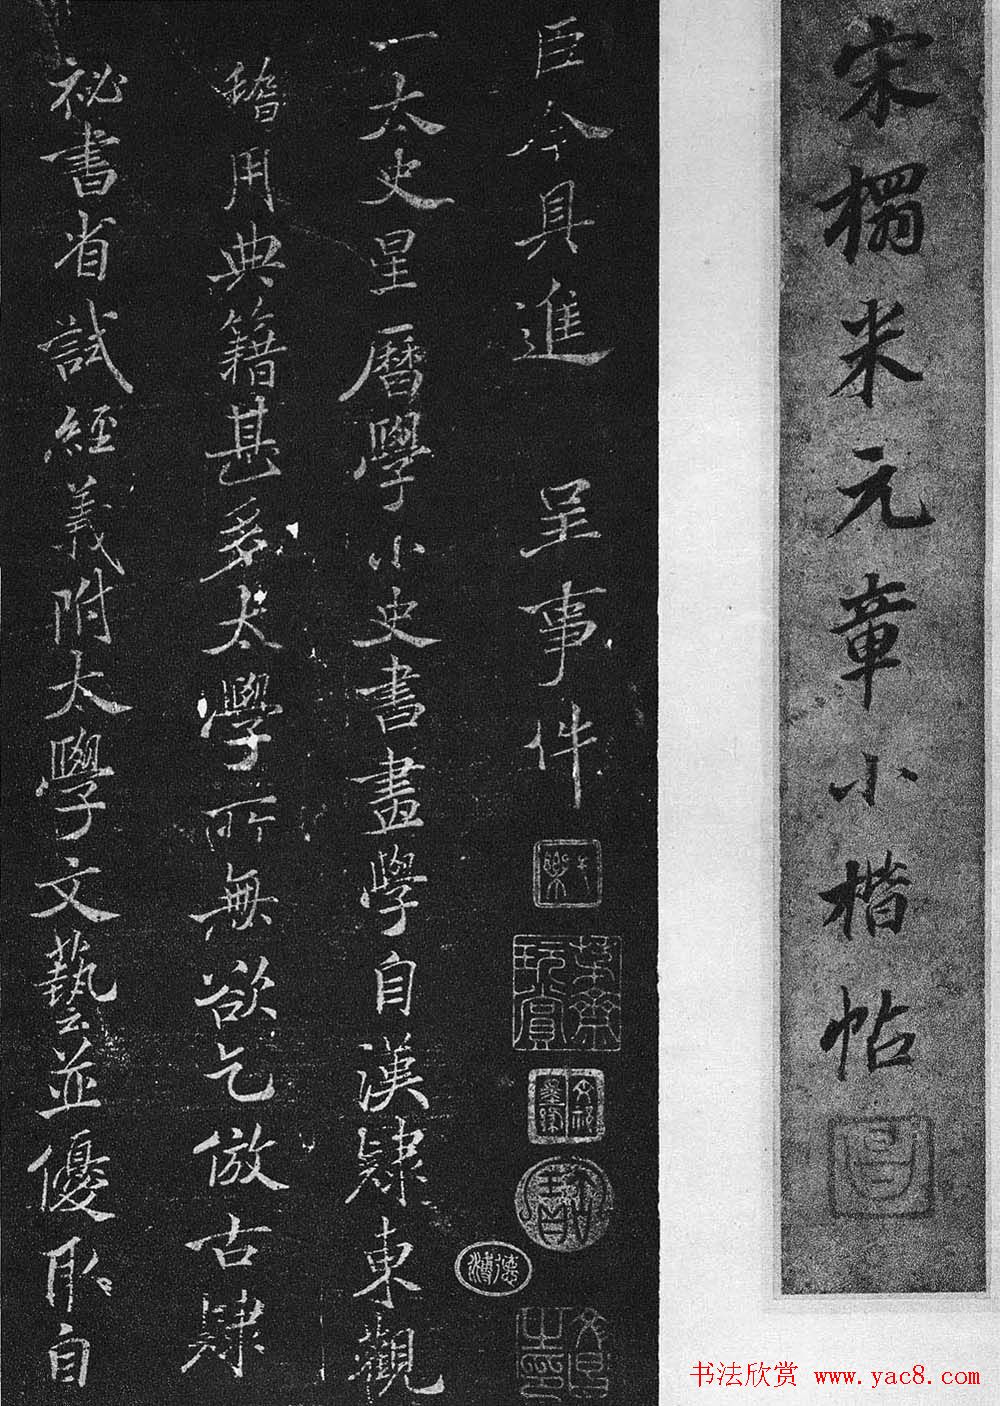 宋榻米元章小楷帖
臣今具進 呈事件
一太史星曆學小史書畫學自漢隸東觀
稽用典籍甚多太學所無欲乞倣古隸
祕書省試經義附太學文藝並優取自
书法欣赏 www.yac8.com